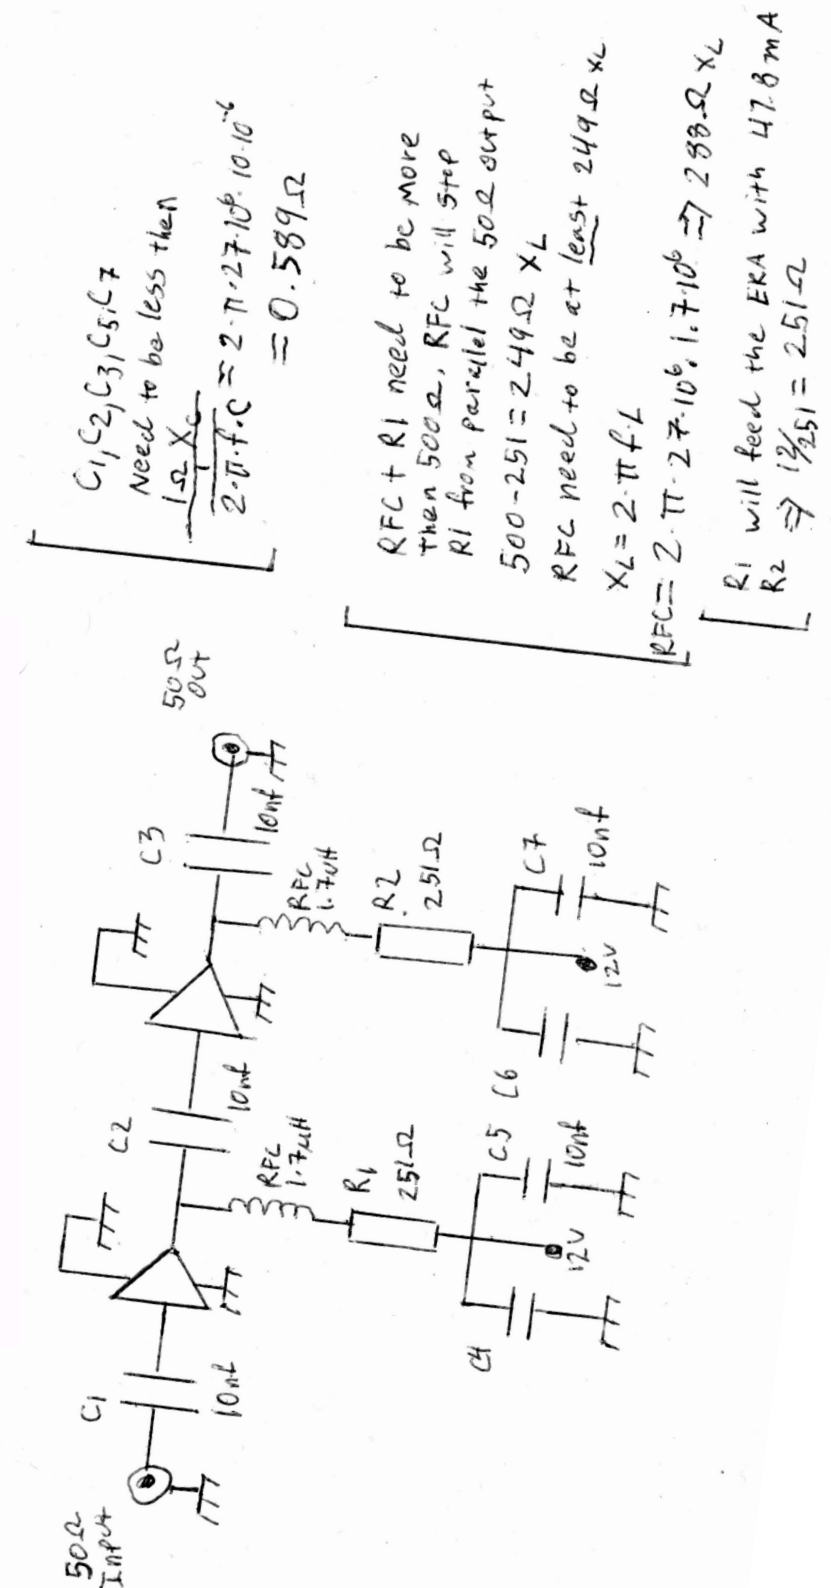 50Ω
Input
C1
10nf
C2
10nf
RFC
1.7uH
R1
251Ω
C4
C5
10nf
12V
C3
10nf
50Ω
out
RFC
1.7uH
R2
251Ω
C6
C7
10nf
12V
C1, C2, C3, C5, C7
Need to be less then
1Ω Xc
2·π·f·C = 2·π·27·10⁶·10·10⁻⁶
= 0.589Ω
RFC + R1 need to be more
then 500Ω, RFC will stop
R1 from parallel the 50Ω output
500-251=249Ω XL
RFC need to be at least 249Ω XL
XL = 2·πf·L
RFC= 2·π·27·10⁶·1.7·10⁶ => 288Ω XL
R1 will feed the ERA with 47.8mA
R2 => 12/251 = 251Ω